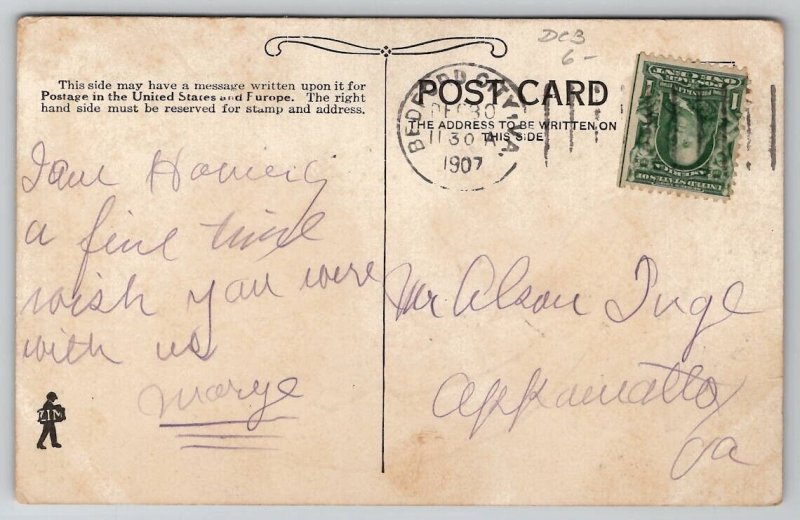 DCB
6-
This side may have a message written upon it for
Postage in the United States and Europe. The right
hand side must be reserved for stamp and address.
POST CARD
THE ADDRESS TO BE WRITTEN ON
THIS SIDE
BEDFORD CITY, VA.
DEC 30
11 30 A
1907
POSTAGE
ONE CENT
1
UNITED STATES OF
AMERICA
I am Haveing
a fine time
wish you were
with us
Marye
ZIM
Mr Alson Inge
Appamattox
Va